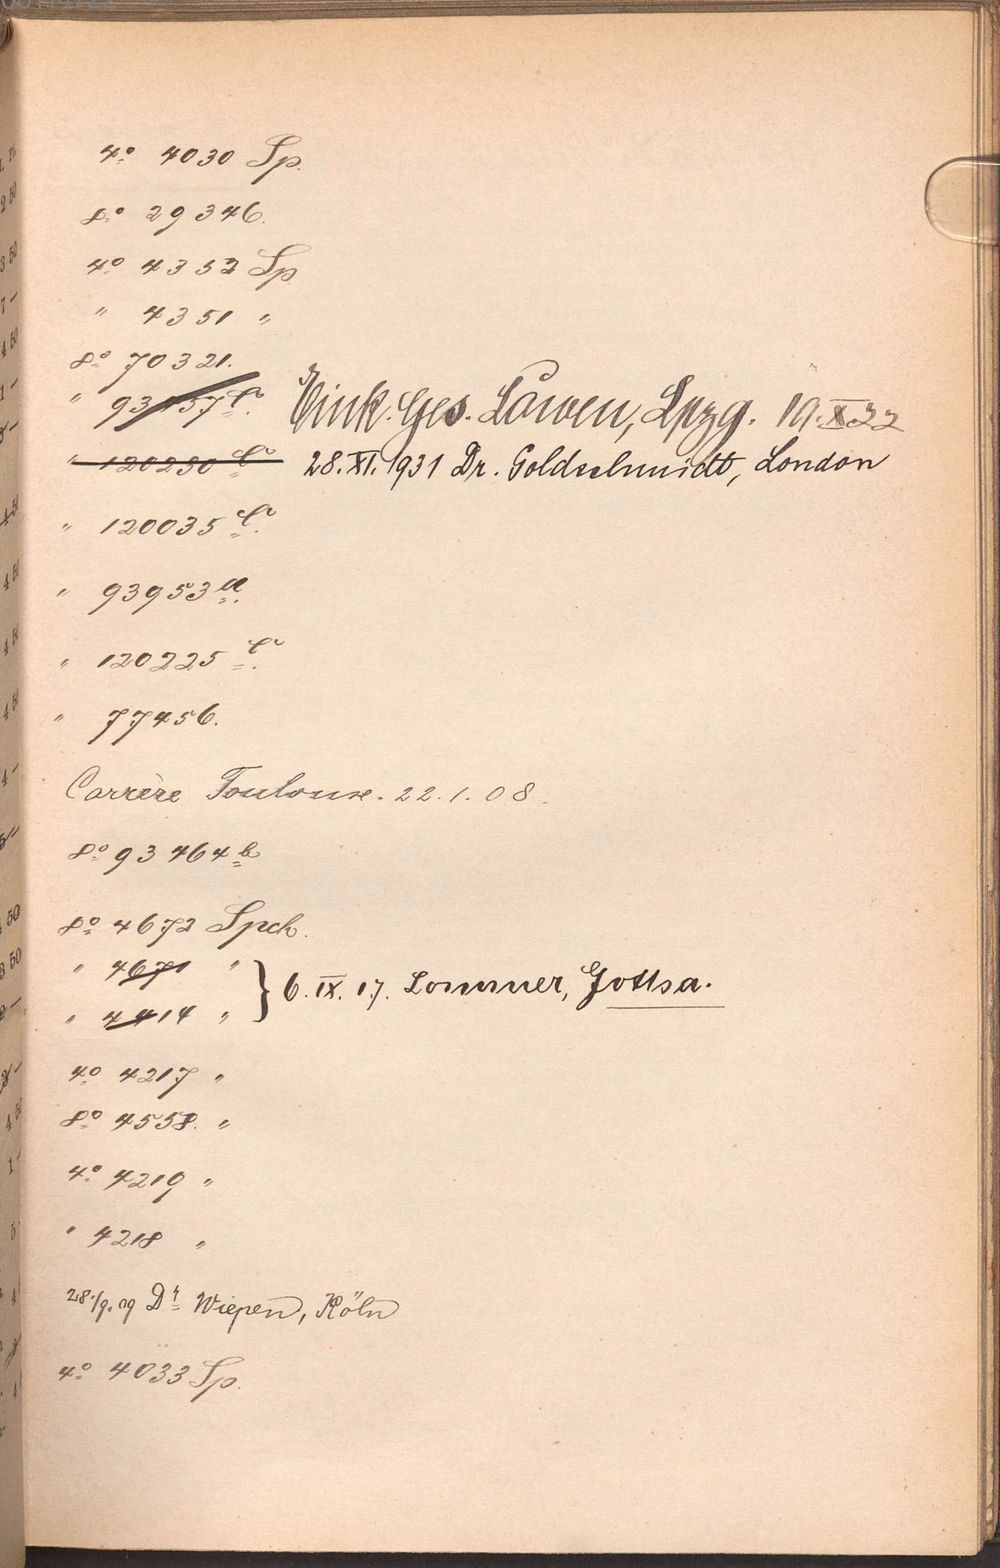 4º 4030 Sp.
8º 29346.
4º 4352 Sp
" 4351 "
8º 70321.
" 93157 c. Eink. Ges. Löwen, Lpzg. 19.X 32
" 120230 c 28.XI.1931 Dr. Goldschmidt, London
" 120035 c.
" 93953 a.
" 120225 c.
" 77456.
Carrère Toulouse. 22.1.08.
8º 93464 b
8º 4672 Spch.
" 4671 "
" 4414 " } 6.IX.17. Lommer, Gotha.
4º 4217 "
8º 4558. "
4º 4219 "
" 4218 "
28./9.09 Dr Wiepen, Köln
4º 4033 Sp.